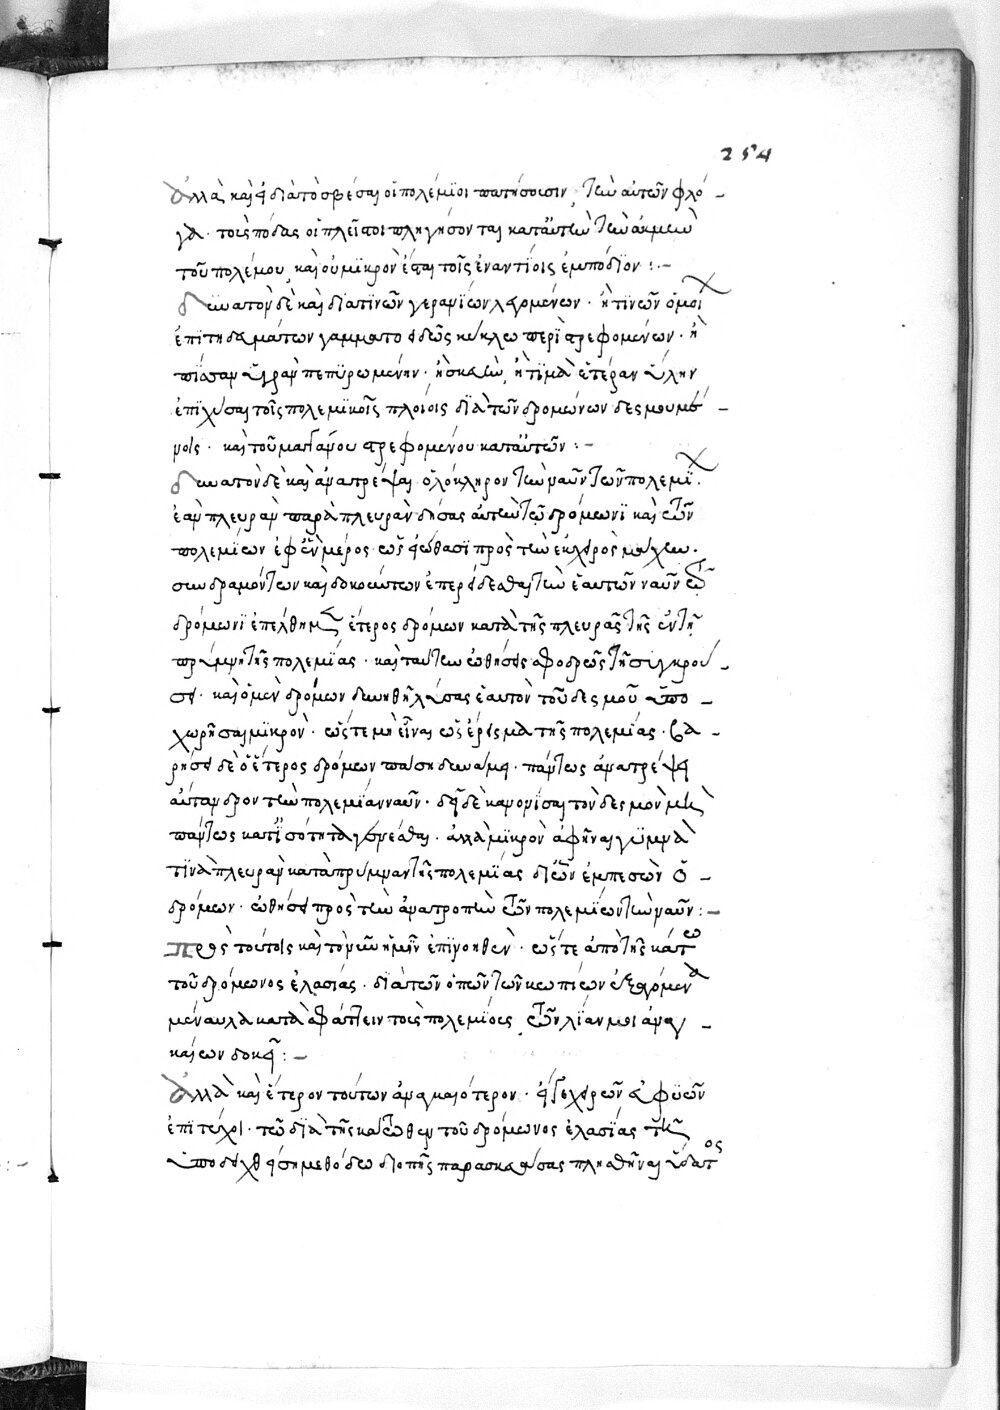 254
ἀλλὰ καὶ εἰ διὰ τὸ σβέσαι οἱ πολέμϊοι πατήσουσιν τὴν αὐτῶν φλό
γα· τοὺς πόδας οἱ πλεῖστοι πληγήσονται κατ' αὐτὴν τὴν ἀκμὴν
τοῦ πολέμου, καὶ οὐ μϊκρὸν ἔσται τοῖς ἐναντίοις ἐμπόδϊον:-
δυνατὸν δὲ καὶ διὰ τινῶν γερανίων λεγομένων· ἤ τινων ὁμοί
ἐπιτηδευμάτων γαμματοειδῶς κύκλω περιστρεφομένων· ἢ
πίσσαν ὑγρὰν πεπυρωμένην· ἢ σκευὴν, ἤ τινα ἑτέραν ὕλην
ἐπιχύσαι τοῖς πολεμικοῖς πλοίοις διὰ τῶν δρομώνων δεσμουμέ
νοις· καὶ τοῦ μαγγάνου στρεφομένου κατ' αὐτῶν:-
δυνατὸν δὲ καὶ ἀναστρέψαι ὁλόκληρον τὴν ναῦν τῶν πολεμί
ἐὰν πλευρὰν παρὰ πλευρὰν δήσας αὐτὴν τῷ δρόμωνι καὶ τῶν
πολεμίων ἐφ' ἓν μέρος ὡς εἰώθασι πρὸς τὴν ἐκ χειρὸς μάχην·
συνδραμόντων καὶ δοκούντων ἐπερείδεσθαι τὴν ἑαυτῶν ναῦν τῷ
δρόμωνι ἐπέλθη μὲν ἕτερος δρόμων κατὰ τῆς πλευρᾶς τῆς ἐν τῇ
πρύμνη τῆς πολεμίας· καὶ ταύτην ὠθήσει σφοδρῶς τῇ συγκρού
σει· καὶ ὁ μὲν δρόμων δυνηθῇ λύσας ἑαυτὸν τοῦ δεσμοῦ ὑπο
χωρῆσαι μικρὸν· ὥστε μὴ εἶναι ὡς ἔρεισμα τῆς πολεμίας· βα
ρήσει δὲ ὁ ἕτερος δρόμων πάση δυνάμει· πάντως ἀναστρέψει
αὔτανδρον τὴν πολεμίαν ναῦν· δεῖ δὲ κανονίσαι τὸν δεσμὸν μὴ
πάντως κατ' ἰσότητα γενέσθαι· ἀλλὰ μικρὸν ἀφῆναι γυμνὰ
τινὰ πλευρὰν κατὰ πρύμναν τῆς πολεμίας δι' ὧν ἐμπεσὼν ὁ
δρόμων· ὠθήσει πρὸς τὴν ἀνατροπὴν τῶν πολεμίων τὴν ναῦν:-
πρὸς τούτοις καὶ τὸ νῦν ἡμῖν ἐπινοηθὲν· ὥστε ἀπὸ τῆς κάτω
τοῦ δρόμωνος ἐλασίας· διὰ τῶν ὀπῶν τῶν κωπίων ἐξερχόμενα
μέναυλα κατασφάττειν τοὺς πολεμίους τῶν λίαν μοι ἀναγ
καίων δοκεῖ:-
ἀλλὰ καὶ ἕτερον τούτων ἀναγκαιότερον· εἴ γε χειρῶν εὐφυῶν
ἐπιτύχοι· τῶ διὰ τῆς κάτωθεν τοῦ δρόμωνος ἐλασίας
ὑποδειχθείση μεθόδω διοπῆς παρασκευάσας πλησθῆναι ὕδατος